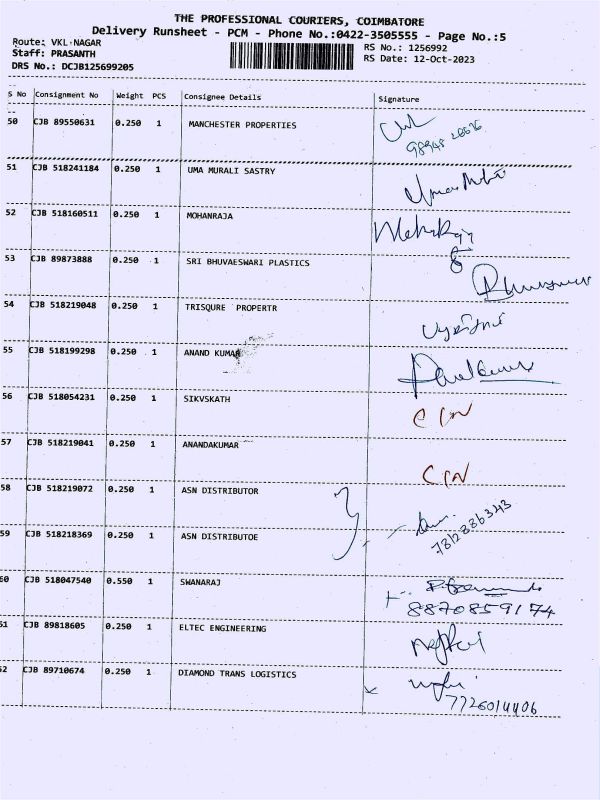 THE PROFESSIONAL COURIERS, COIMBATORE
Delivery Runsheet - PCM - Phone No.:0422-3505555 - Page No.:5
Route: VKL-NAGAR RS No.: 1256992
Staff: PRASANTH RS Date: 12-Oct-2023
DRS No.: DCJB125699205
S No Consignment No Weight PCS Consignee Details Signature
50 CJB 89550631 0.250 1 MANCHESTER PROPERTIES
51 CJB 518241184 0.250 1 UMA MURALI SASTRY
52 CJB 518160511 0.250 1 MOHANRAJA
53 CJB 89873888 0.250 1 SRI BHUVAESWARI PLASTICS
54 CJB 518219048 0.250 1 TRISQURE PROPERTR
55 CJB 518199298 0.250 1 ANAND KUMAR
56 CJB 518054231 0.250 1 SIKVSKATH
57 CJB 518219041 0.250 1 ANANDAKUMAR
58 CJB 518219072 0.250 1 ASN DISTRIBUTOR
59 CJB 518218369 0.250 1 ASN DISTRIBUTOE
7812886343
60 CJB 518047540 0.550 1 SWANARAJ
8870859174
61 CJB 89818605 0.250 1 ELTEC ENGINEERING
62 CJB 89710674 0.250 1 DIAMOND TRANS LOGISTICS
7726014406